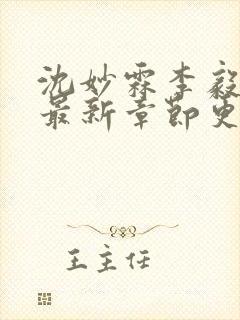 沈妙霖李毅
最新章节更
王主任